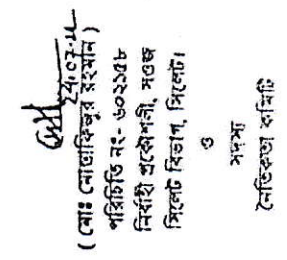 24.07.11
( মোঃ মোস্তাফিজুর রহমান )
পরিচিতি নং- ৬০২১৫৮
নির্বাহী প্রকৌশলী, সওজ
সিলেট বিভাগ, সিলেট।
ও
সদস্য
নৈতিকতা কমিটি